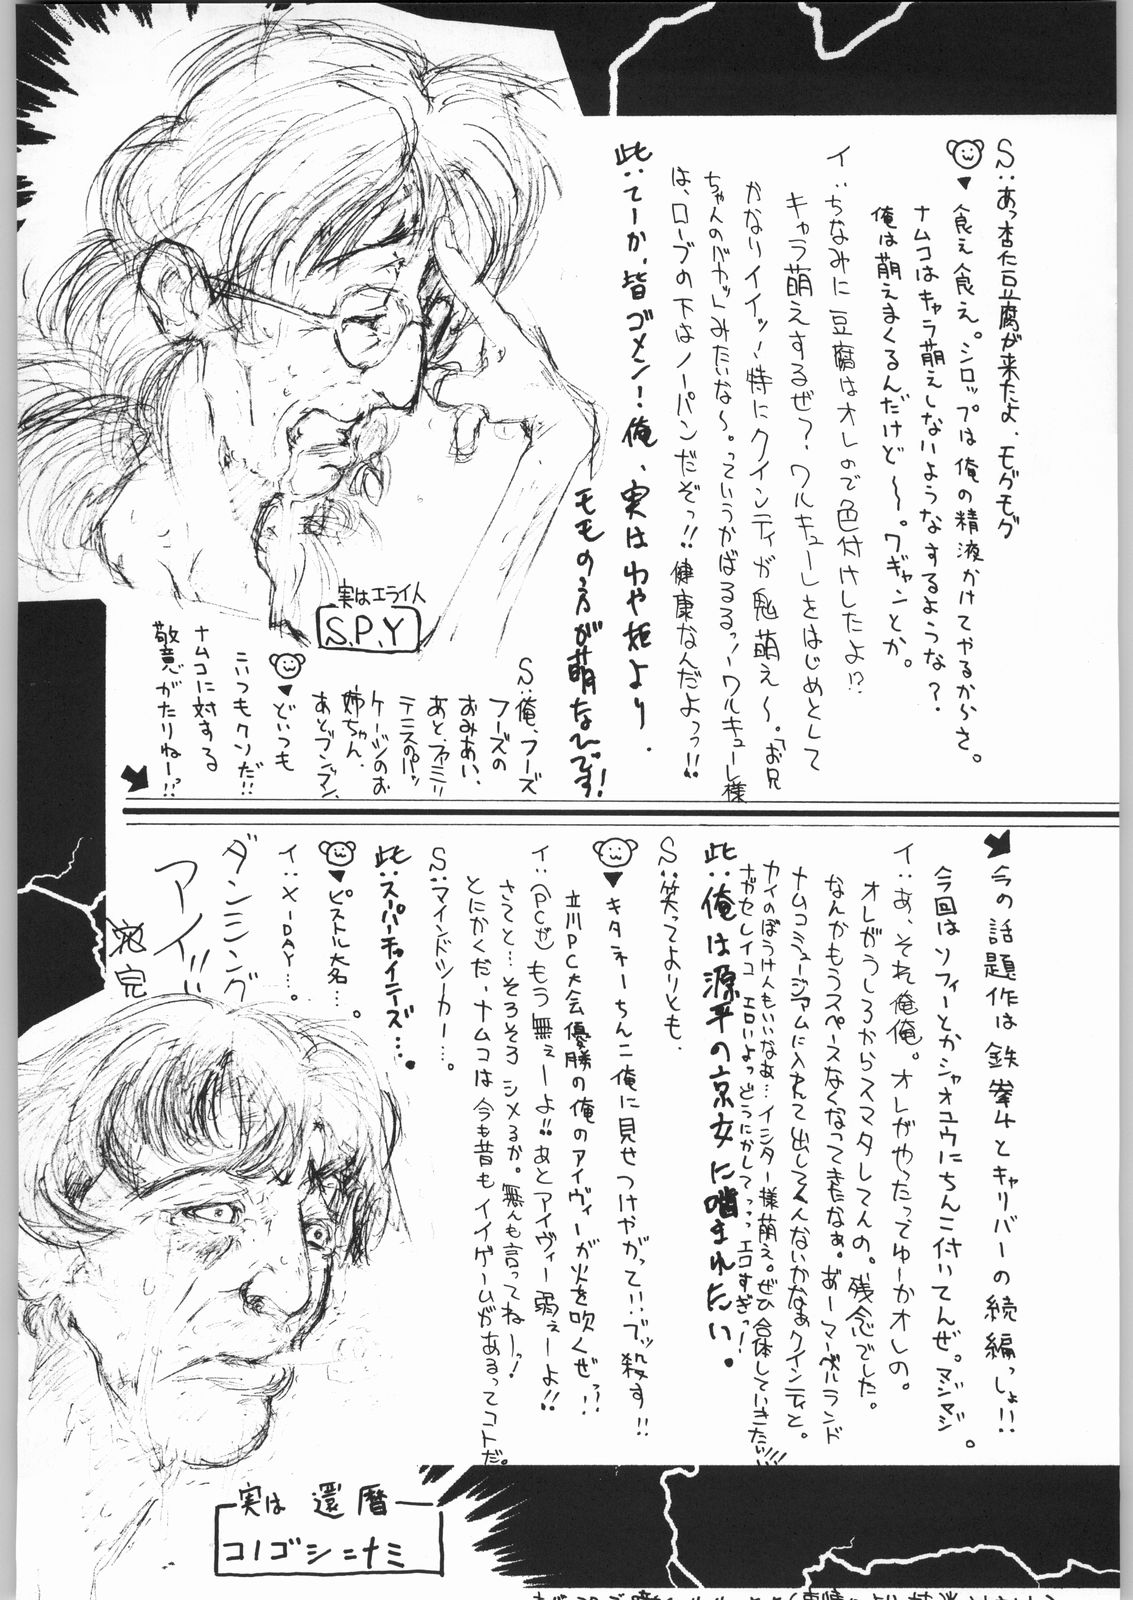 S:あっ杏仁豆腐が来たよ、モグモグ
▼食え食え。シロップは俺の精液かけてやるからさ。
ナムコはキャラ萌えしないようなするような?
俺は萌えまくるんだけど〜。ワギャンとか。
イ:ちなみに豆腐はオレので色付けしたよ!?
キャラ萌えするぜ?ワルキューレをはじめとして
かなりイイッ!特にクインティが鬼萌え〜。「お兄
ちゃんのバカッ」みたいな〜。っていうかばるるっ!ワルキューレ様
は、ローブの下はノーパンだぞっ!!健康なんだよっっ!!
此:てーか、皆ゴメン!俺、実はわや姫より、
モモの方が萌なんです!
実はエライ人
S.P.Y
S:俺、フーズ
フーズの
おみあい、
あと、ファミリ
テニスのパッ
ケージのお
姉ちゃん、
あとブンブン、
▼どいつも
こいつもクソだ!!
ナムコに対する
敬意がたりねーっ!!
今の話題作は鉄拳4とキャリバーの続編っしょ!!
今回はソフィーとかシャオユウにちんこ付いてんぜ。マジマジ。
イ:あ、それ俺俺。オレがやったってゆーかオレの。
オレがうしろからスマタしてんの。残念でした。
なんかもうスペースなくなってきたなぁ。あーマーベルランド
ナムコミュージアムに入れて出してくんないかなぁクインティと。
カイのぼうけんもいいなぁ…イシター様萌え。ぜひ合体していきたい!!!
ガゼセレイユ エロいよっどうにかしてっっっエロすぎっ!
此:俺は源平の京女に噛まれたい。
S:笑ってよりとも、
▼キタネーちんこ俺に見せつけやがって!!ブッ殺す!!
立川PC大会優勝の俺のアイヴィーが火を吹くぜっ??
イ:(PCが)もう無ぇーよ!!あとアイヴィー弱ぇーよ!!
さてと…そろそろシメるか。無んも言ってねーっ!
とにかくだ、ナムコは今も昔もイイゲームがあるってコトだ。
S:マインドシーカー…。
此:スーパーチャイニーズ…。
▼ピストル大名…。
イ:X-DAY…。
ダンシング
アイ!!
完
実は 還暦
コノゴシニナミ